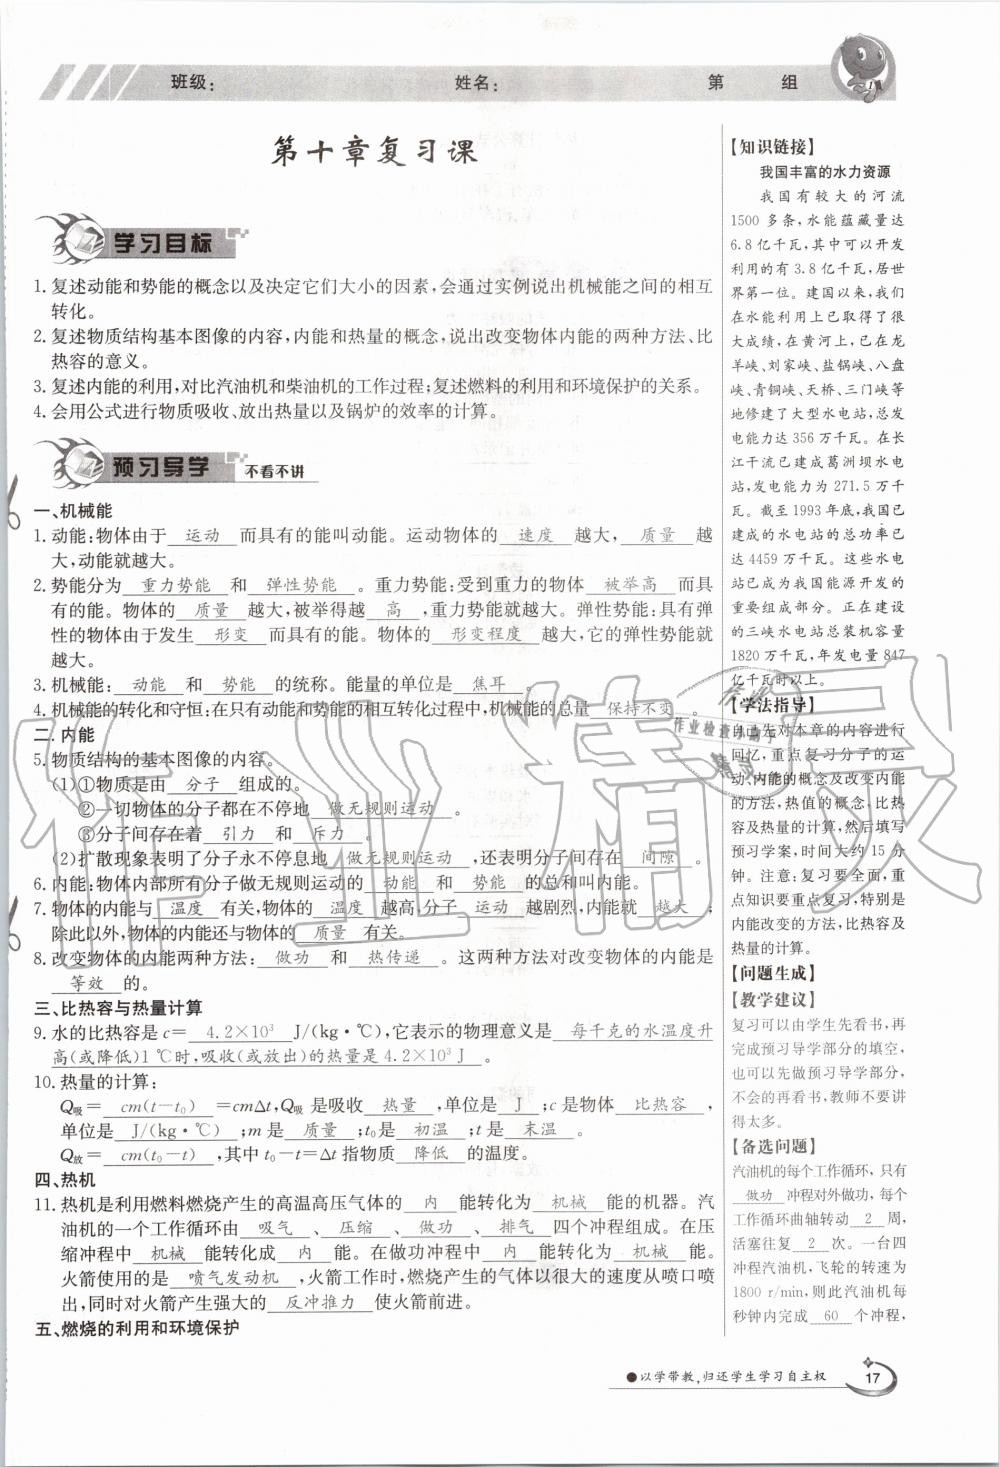 班级：
姓名：
第 组
第十章复习课
学习目标
1. 复述动能和势能的概念以及决定它们大小的因素,会通过实例说出机械能之间的相互
转化。
2. 复述物质结构基本图像的内容,内能和热量的概念,说出改变物体内能的两种方法、比
热容的意义。
3. 复述内能的利用,对比汽油机和柴油机的工作过程;复述燃料的利用和环境保护的关系。
4. 会用公式进行物质吸收、放出热量以及锅炉的效率的计算。
预习导学 不看不讲
一、机械能
1. 动能:物体由于 运动 而具有的能叫动能。运动物体的 速度 越大, 质量 越
大,动能就越大。
2. 势能分为 重力势能 和 弹性势能 。重力势能:受到重力的物体 被举高 而具
有的能。物体的 质量 越大,被举得越 高 ,重力势能就越大。弹性势能:具有弹
性的物体由于发生 形变 而具有的能。物体的 形变程度 越大,它的弹性势能就
越大。
3. 机械能: 动能 和 势能 的统称。能量的单位是 焦耳 。
4. 机械能的转化和守恒:在只有动能和势能的相互转化过程中,机械能的总量 保持不变 。
二、内能
5. 物质结构的基本图像的内容。
(1)①物质是由 分子 组成的。
②一切物体的分子都在不停地 做无规则运动 。
③分子间存在着 引力 和 斥力 。
(2)扩散现象表明了分子永不停息地 做无规则运动 ,还表明分子间存在 间隙 。
6. 内能:物体内部所有分子做无规则运动的 动能 和 势能 的总和叫内能。
7. 物体的内能与 温度 有关,物体的 温度 越高,分子 运动 越剧烈,内能就 越大 ;
除此以外,物体的内能还与物体的 质量 有关。
8. 改变物体的内能两种方法: 做功 和 热传递 。这两种方法对改变物体的内能是
等效 的。
三、比热容与热量计算
9. 水的比热容是 c= 4.2×10³ J/(kg·℃),它表示的物理意义是 每千克的水温度升
高(或降低)1 ℃时,吸收(或放出)的热量是4.2×10³ J 。
10. 热量的计算:
Q吸= cm(t-t₀) =cmΔt,Q吸 是吸收 热量 ,单位是 J ;c 是物体 比热容 ,
单位是 J/(kg·℃) ;m 是 质量 ;t₀是 初温 ;t 是 末温 。
Q放= cm(t₀-t) ,其中 t₀-t=Δt 指物质 降低 的温度。
四、热机
11. 热机是利用燃料燃烧产生的高温高压气体的 内 能转化为 机械 能的机器。汽
油机的一个工作循环由 吸气 、 压缩 、 做功 、 排气 四个冲程组成。在压
缩冲程中 机械 能转化成 内 能。在做功冲程中 内 能转化为 机械 能。
火箭使用的是 喷气发动机 ,火箭工作时,燃烧产生的气体以很大的速度从喷口喷
出,同时对火箭产生强大的 反冲推力 使火箭前进。
五、燃烧的利用和环境保护
【知识链接】
我国丰富的水力资源
我国有较大的河流
1500 多条,水能蕴藏量达
6.8 亿千瓦,其中可以开发
利用的有 3.8 亿千瓦,居世
界第一位。建国以来,我们
在水能利用上已取得了很
大成绩,在黄河上,已在龙
羊峡、刘家峡、盐锅峡、八盘
峡、青铜峡、天桥、三门峡等
地修建了大型水电站,发电
能力达 356 万千瓦。在长
江干流已建成葛洲坝水电
站,发电能力为 271.5 万千
瓦。截至 1993 年底,我国已
建成的水电站的总功率已
达 4459 万千瓦。这些水电
站已成为我国能源开发的
重要组成部分。正在建设
的三峡水电站总装机容量
1820 万千瓦,年发电量 847
亿千瓦时以上。
【学法指导】
自先对本章的内容进行
回忆,重点复习分子的运
动、内能的概念及改变内能
的方法,热值的概念,比热
容及热量的计算,然后填写
预习学案,时间大约 15 分
钟。注意:复习要全面,重
点知识要重点复习,特别是
内能改变的方法,比热容及
热量的计算。
【问题生成】
【教学建议】
复习可以由学生先看书,再
完成预习导学部分的填空,
也可以先做预习导学部分,
不会的再看书,教师不要讲
得太多。
【备选问题】
汽油机的每个工作循环,只有
做功 冲程对外做功,每个
工作循环曲轴转动 2 周,
活塞往复 2 次。一台四
冲程汽油机,飞轮的转速为
1800 r/min,则此汽油机每
秒钟内完成 60 个冲程,
●以学带教,归还学生学习自主权
17
作业精灵
作业
作业检查小助手
精灵